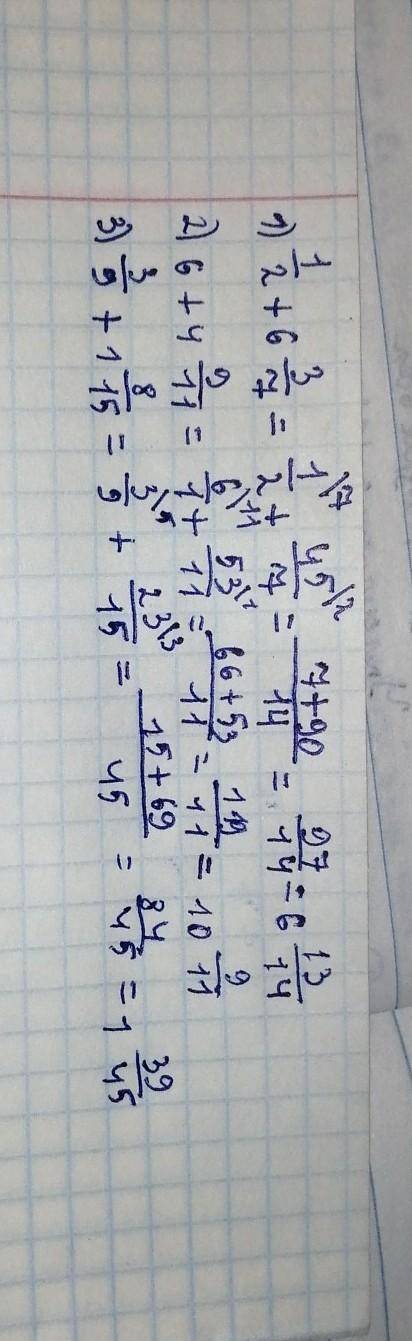 1) 1/2 + 6 3/7 = 1\7/2 + 45\2/7 = 7+90/14 = 97/14 = 6 13/14
2) 6 + 4 9/11 = 6\11/1 + 53\1/11 = 66+53/11 = 119/11 = 10 9/11
3) 3/9 + 1 8/15 = 3\5/9 + 23\3/15 = 15+69/45 = 84/45 = 1 39/45